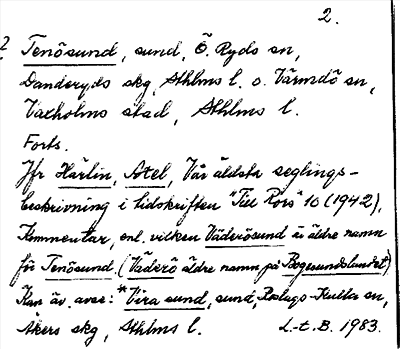 2.
Tenösund, sund, Ö. Ryds sn,
Danderyds skg, Sthlms l. o. Värmdö sn,
Vaxholms stad, Sthlms l.
Forts.
Jfr Härlin, Axel, Vår äldsta seglings-
beskrivning i tidskriften "Till Rors" 10 (1942).
Kommentar, enl. vilken Väderösund är äldre namn
för Tenösund. (Väderö äldre namn på Bogesundslandet)
Kan äv. avse: *Vira sund, sund, Roslags-Kulla sn,
Åkers skg, Sthlms l. L-t. B. 1983.